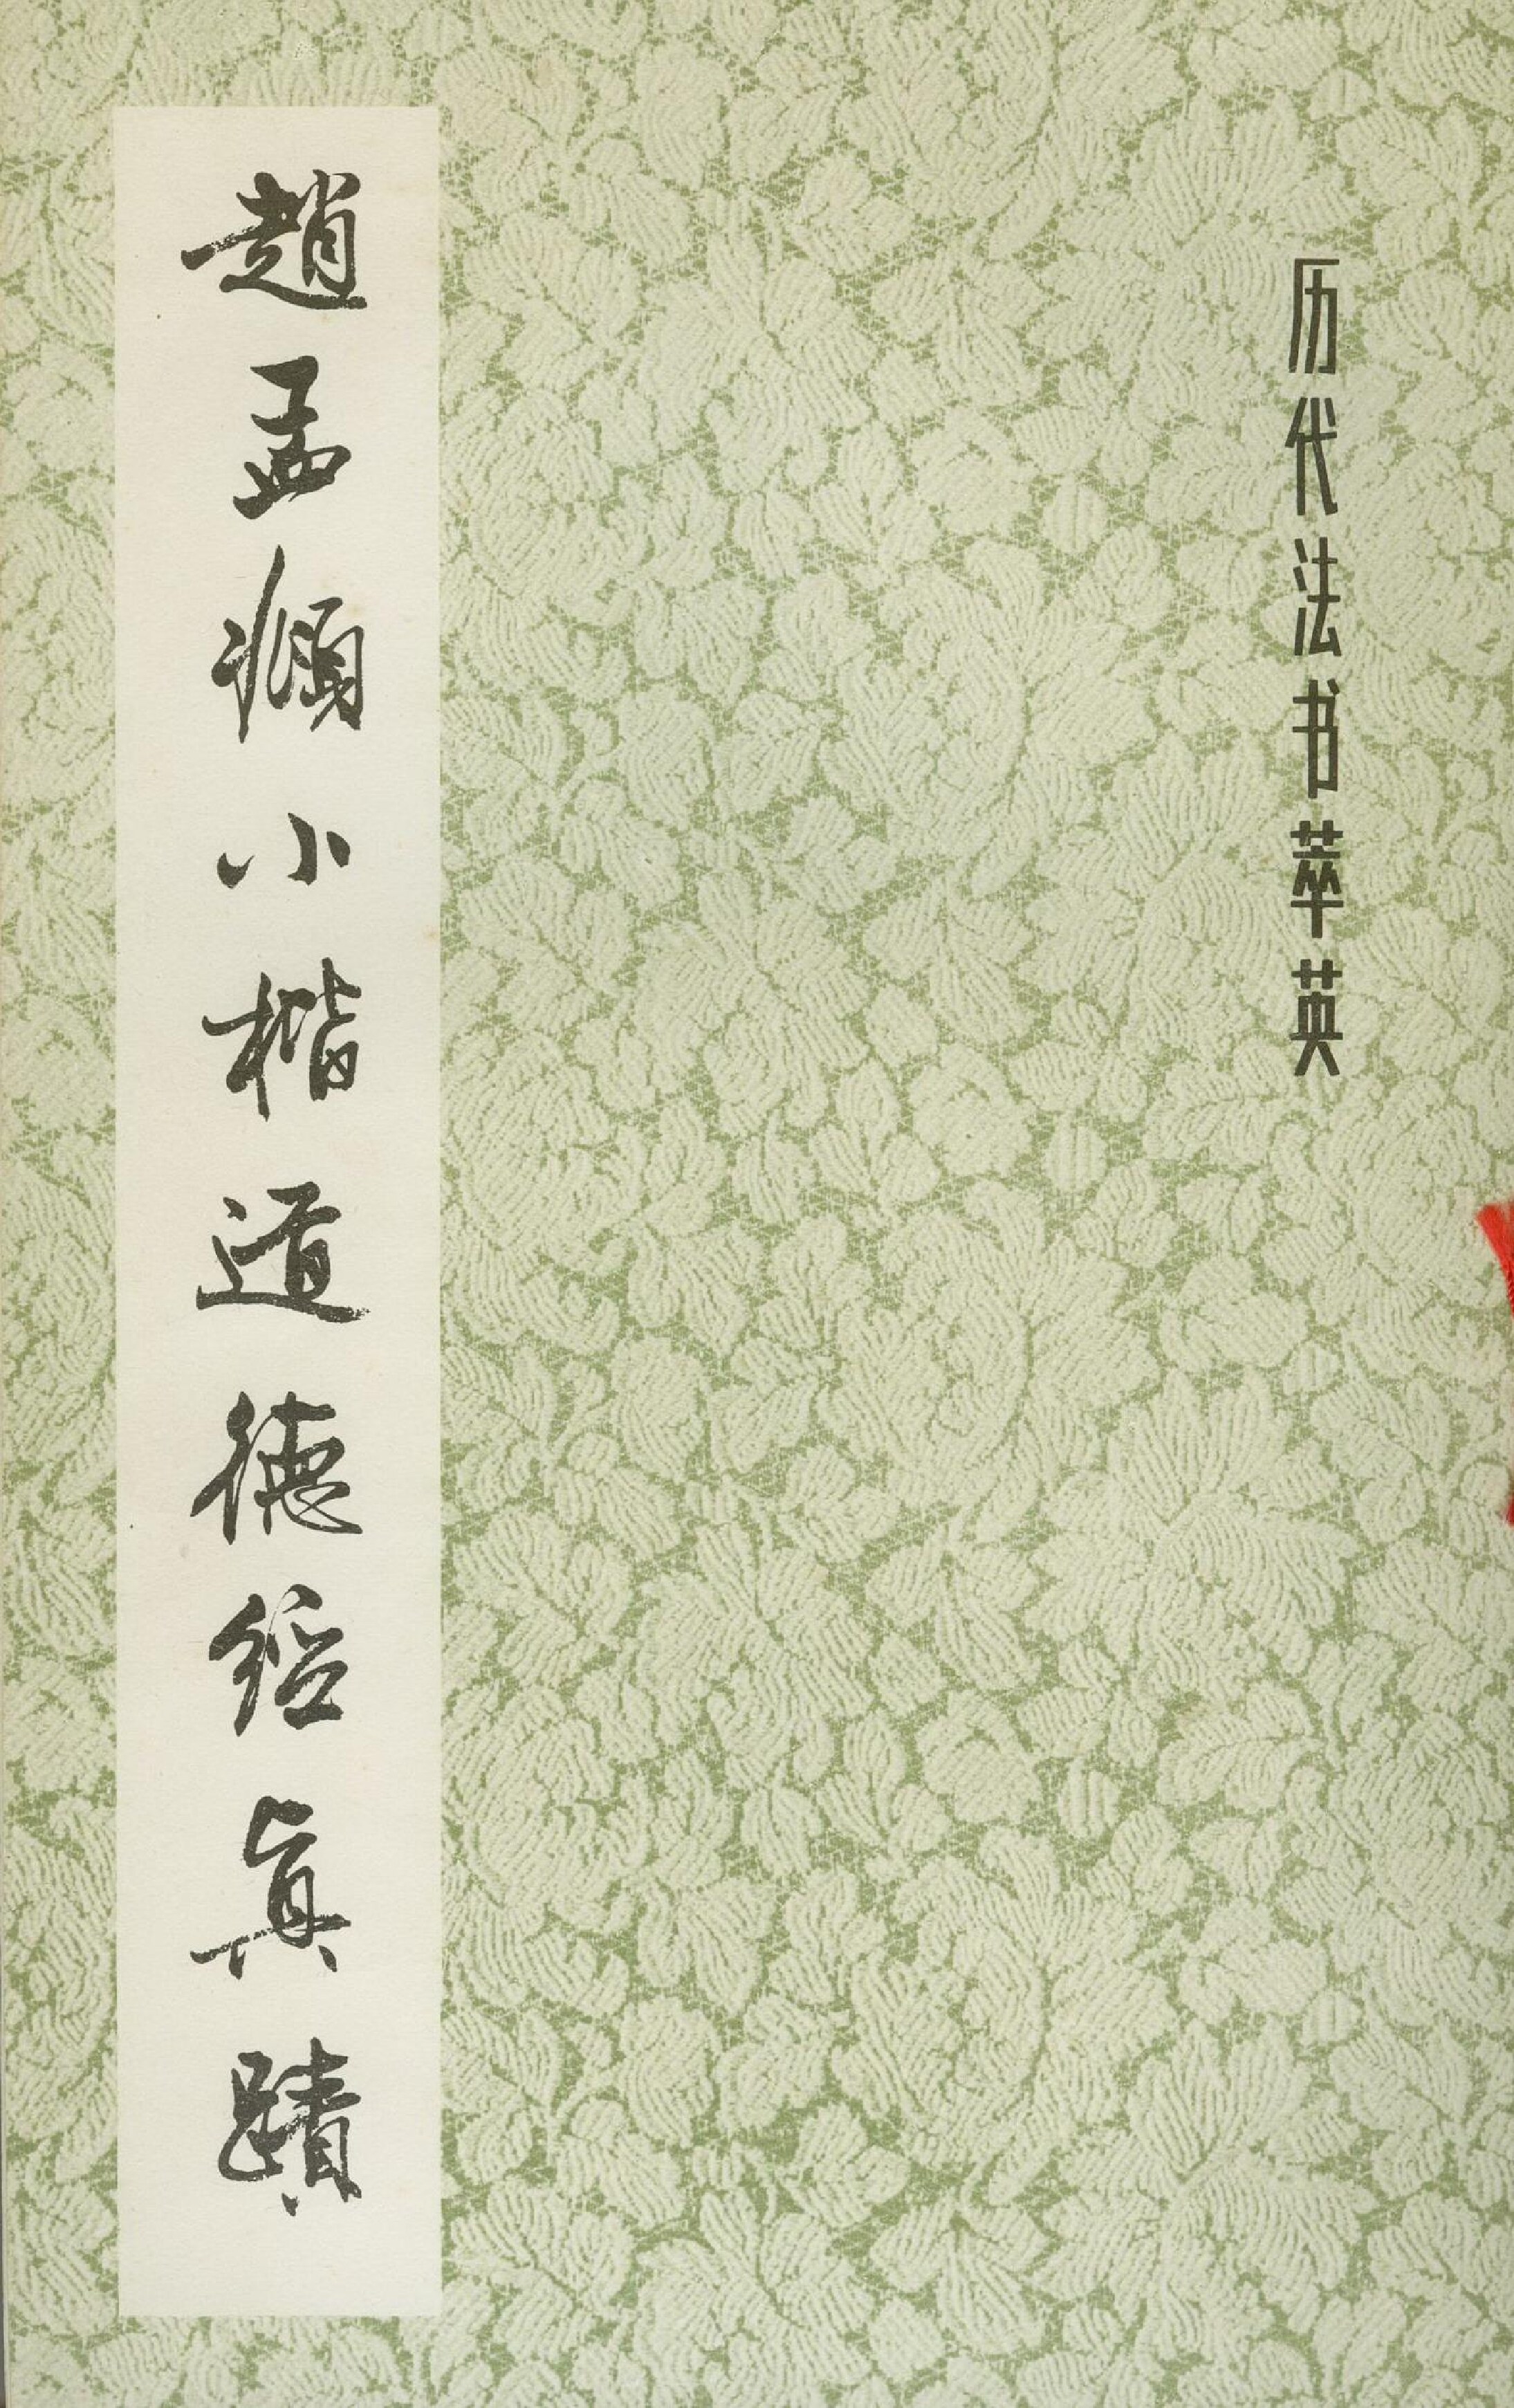 历代法书萃英
趙孟頫小楷道德经真蹟